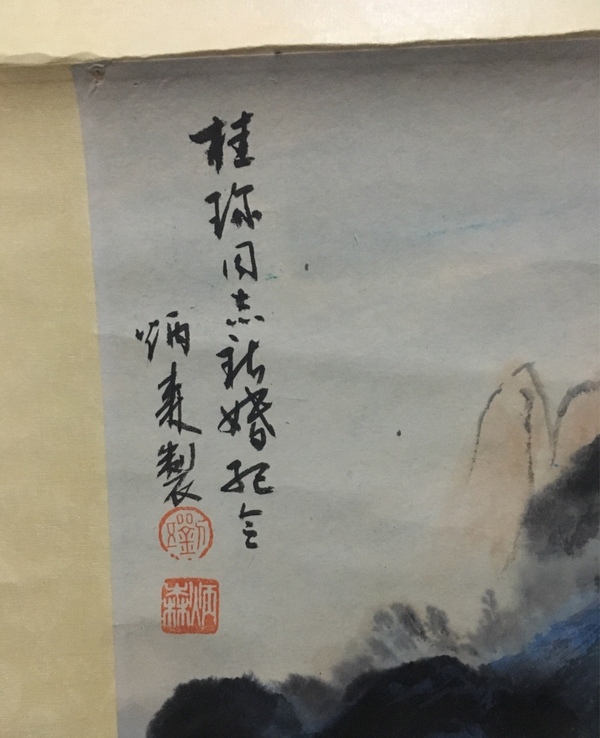 桂珎同志新婚纪念
炳森製
劉
炳森